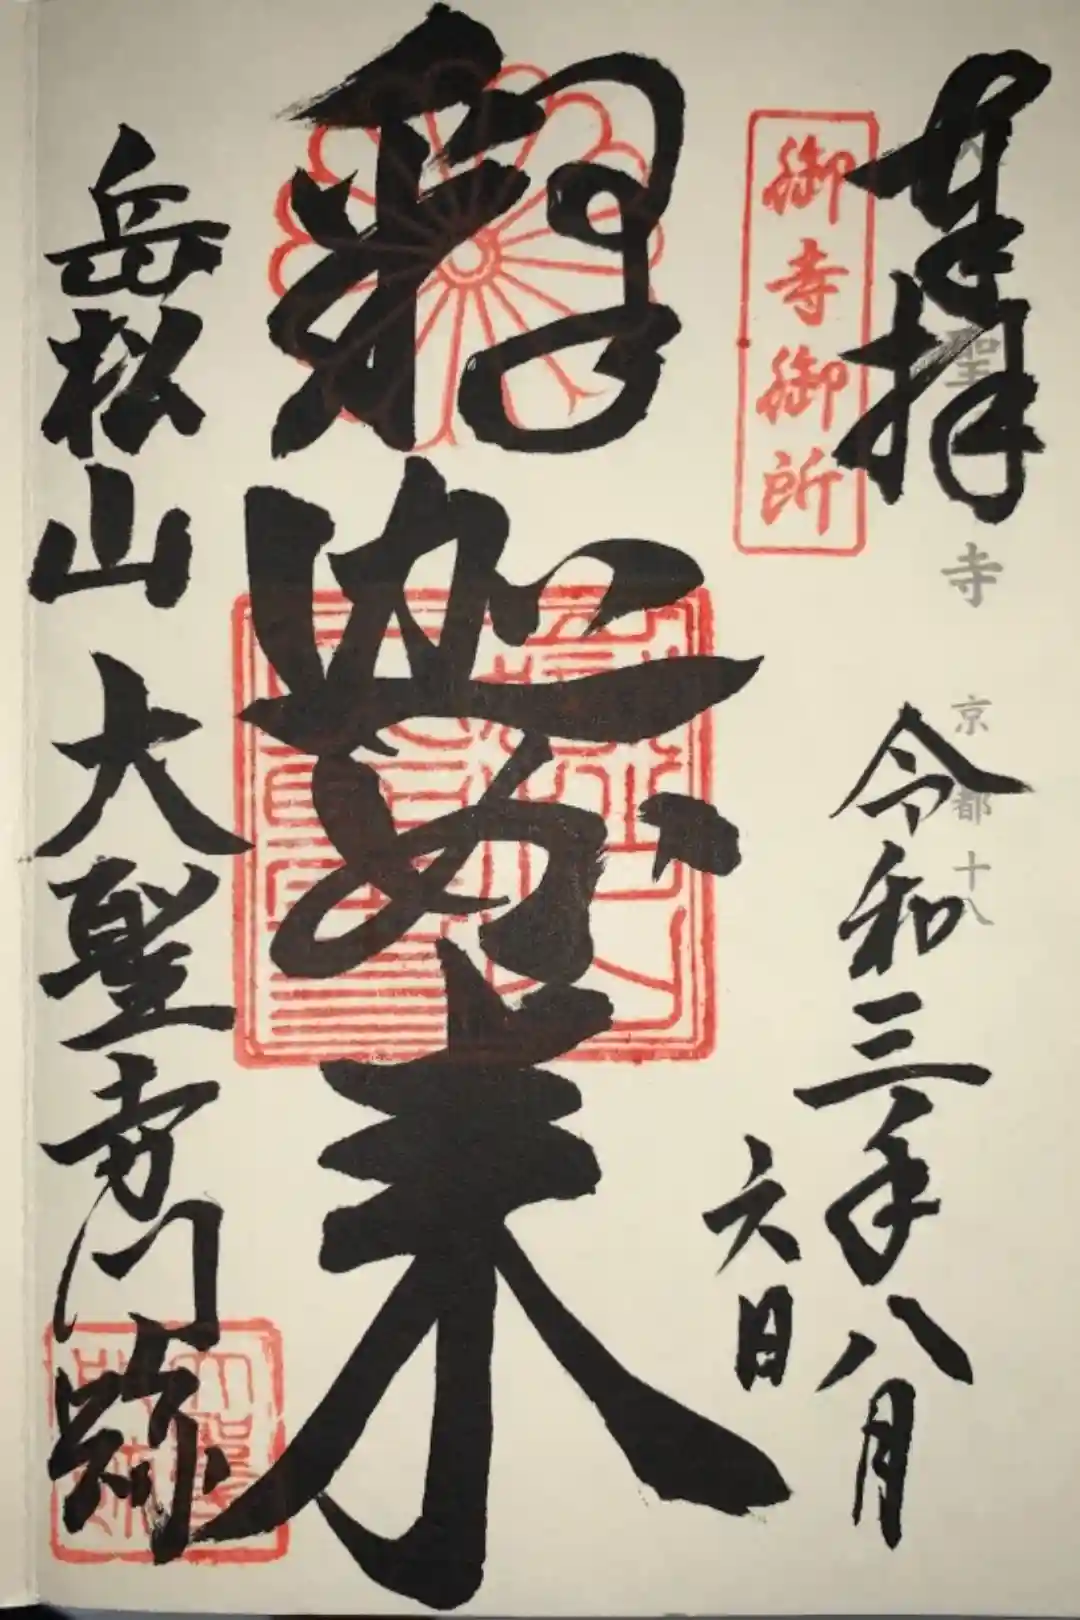 奉拝
大聖寺 京都十八
令和三年八月
六日
御寺御所
釈迦如来
岳松山大聖寺門跡